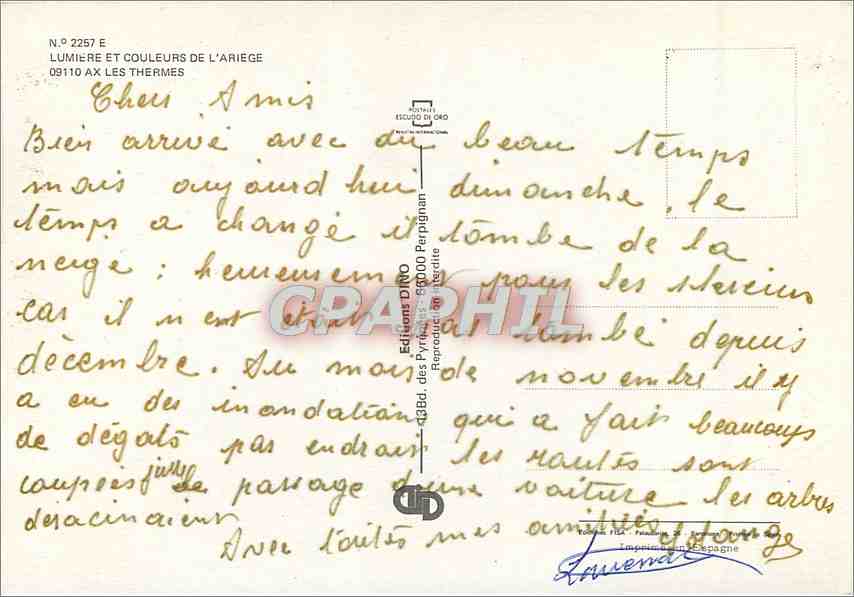 N.º 2257 E
LUMIERE ET COULEURS DE L'ARIEGE
09110 AX LES THERMES
Chers Amis
POSTALES
ESCUDO DE ORO
Bien arrivé avec du beau temps
mais aujourd hui dimanche, le
temps a changé il tombe de la
neige : heureusement pour les skieurs
car il n en était pas tombé depuis
décembre. Au mois de novembre il y
a eu des inondation qui a fait beaucoups
de dégats par endroit les routes sont
coupées juste le passage d'une voiture les arbres
déracinaient
Avec toutes mes amitiés
Editions DINO
43Bd. des Pyrénées - 66000 Perpignan
Reproduction interdite
CPAPHIL
Imprimé en Espagne